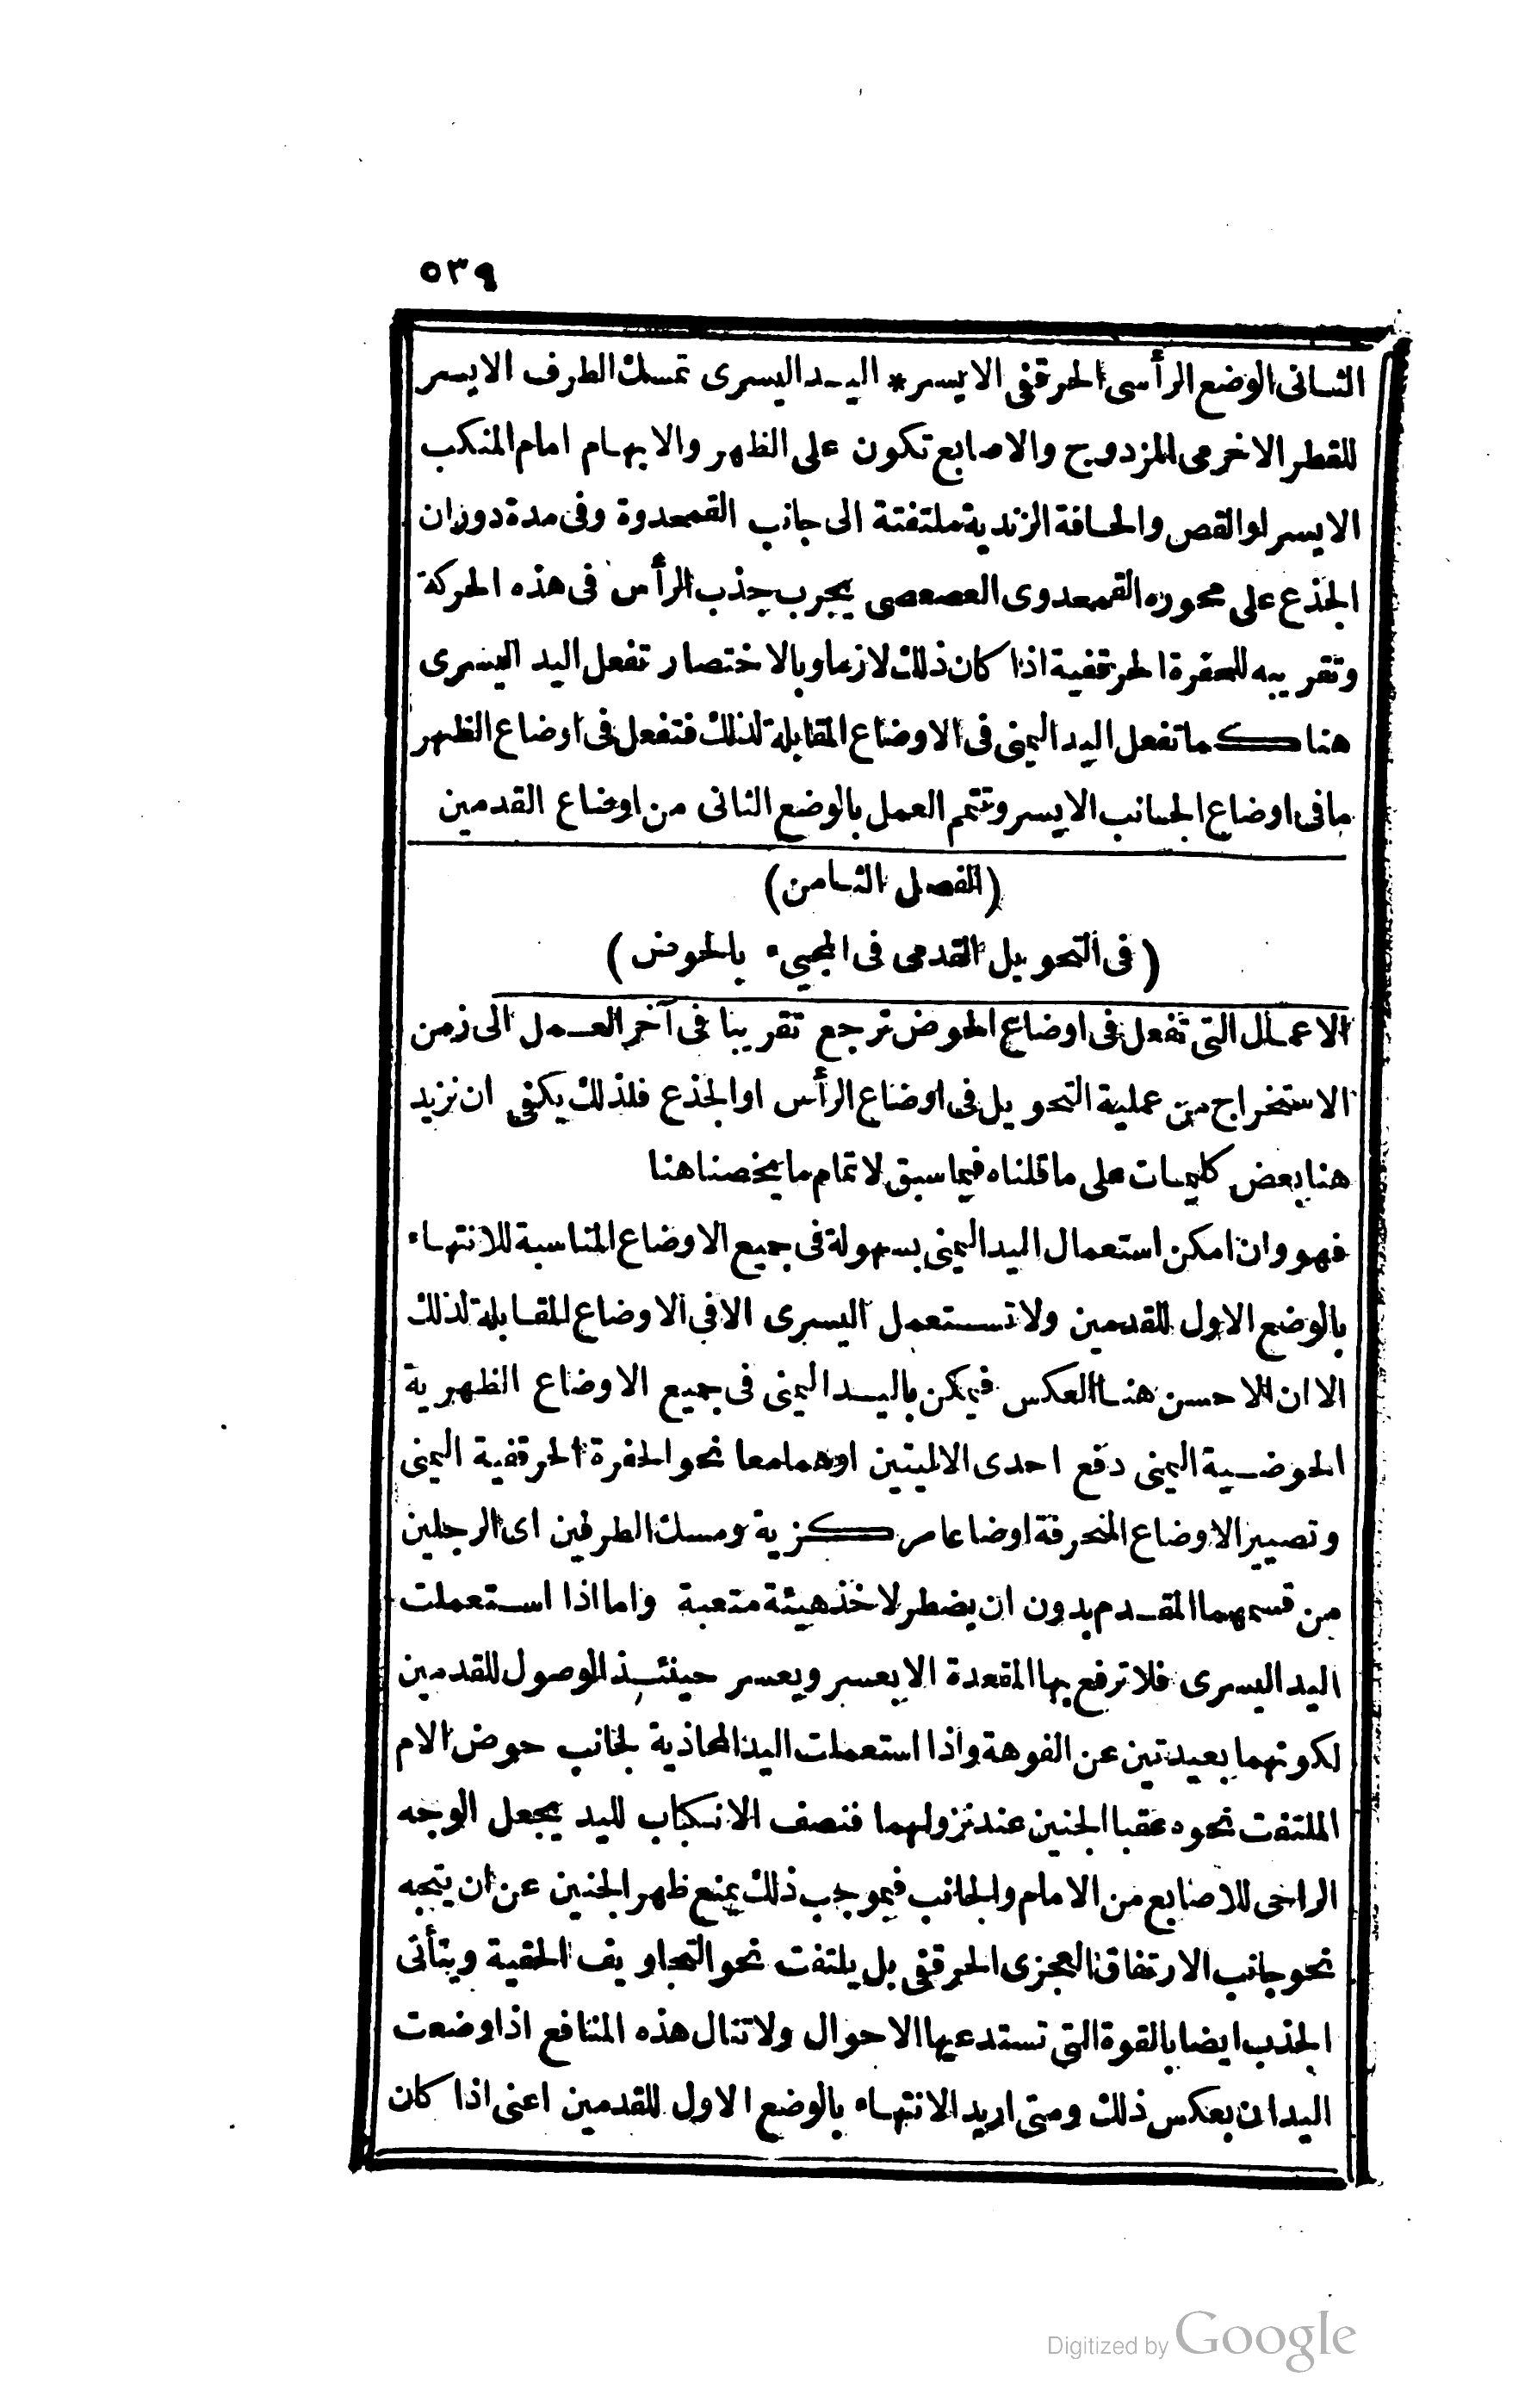 ٥٣٩
الثانى الوضع الرأسى الحرقفى الايسر * اليد اليسرى تمسك الطرف الايسر
للقطر الاخرمى المزدوج والاصابع تكون على الظهر والابهام امام المنكب
الايسر او القص والحافة الزندية ملتفتة الى جانب القمحدوة وفى مدة دوران
الجذع على محوره القمحدوى العصعصى يجرب جذب الرأس فى هذه الحركة
وتقريبه للحفرة الحرقفية اذا كان ذلك لازما وبالاختصار تفعل اليد اليسرى
هنا كما تفعل اليد اليمنى فى الاوضاع المقابلة لذلك فتفعل فى اوضاع الظهر
مافى اوضاع الجانب الايسر وتتمم العمل بالوضع الثانى من اوضاع القدمين
(الفصل الثامن)
(فى التحويل القدمى فى المجىء بالحوض)
الاعمال التى تفعل فى اوضاع الحوض ترجع تقريبا فى آخر العمل الى زمن
الاستخراج من عملية التحويل فى اوضاع الرأس او الجذع فلذلك يكفى ان نزيد
هنا بعض كليمات على ما قلناه فيما سبق لاتمام ما يخصنا هنا
فهو وان امكن استعمال اليد اليمنى بسهولة فى جميع الاوضاع المناسبة للانتهاء
بالوضع الاول للقدمين ولا تستعمل اليسرى الا فى الاوضاع المقابلة لذلك
الا ان الاحسن هنا العكس فيمكن باليد اليمنى فى جميع الاوضاع الظهرية
الحوضية اليمنى دفع احدى الاليتين او هما معا نحو الحفرة الحرقفية اليمنى
وتصيير الاوضاع المنحرفة اوضاعا مركزية ومسك الطرفين اى الرجلين
من قسمهما المقدم بدون ان يضطر لاخذ هيئة متعبة واما اذا استعملت
اليد اليسرى فلا ترفع بها المقعدة الا بعسر ويعسر حينئذ الوصول للقدمين
لكونهما بعيدتين عن الفوهة واذا استعملت اليد المحاذية لجانب حوض الام
الملتفت نحوه عقبا الجنين عند نزولهما فنصف الانكباب لليد يجعل الوجه
الراحى للاصابع من الامام والجانب فبموجب ذلك يمنع ظهر الجنين عن ان يتجه
نحو جانب الارتفاق العجزى الحرقفى بل يلتفت نحو التجاويف الحقية ويتأتى
الجذب ايضا بالقوة التى تستدعيها الاحوال ولا تنال هذه المنافع اذا وضعت
اليدان بعكس ذلك ومتى اريد الانتهاء بالوضع الاول للقدمين اعنى اذا كان
Digitized by Google